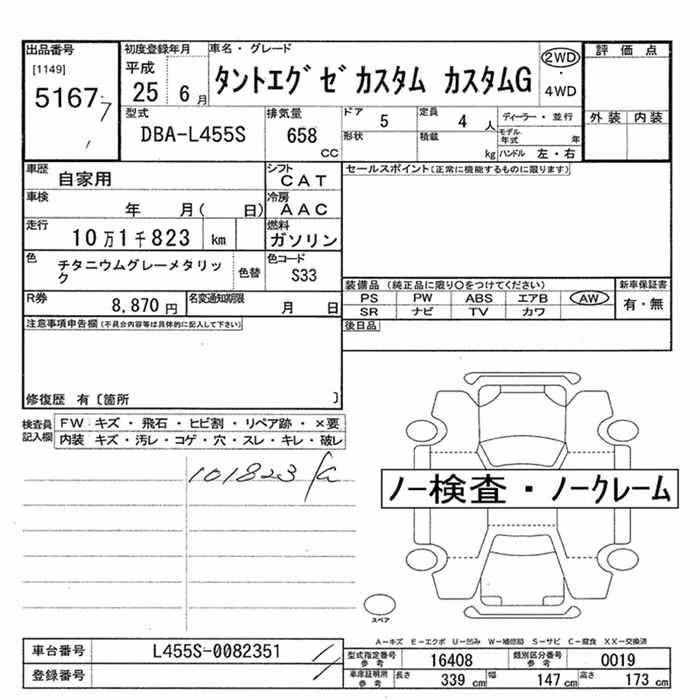 出品番号
[1149]
5167
初度登録年月
平成
25 6月
車名・グレード
タントエグゼカスタム カスタムG
2WD
・
4WD
評価点
外装 内装
型式
DBA-L455S
排気量
658
cc
ドア
5
定員
4人
形状
積載
kg
ディーラー・並行
モデル年式 年
ハンドル 左・右
車歴
自家用
シフト
CAT
車検
年 月( 日)
冷房
AAC
走行
10万1千823 km
燃料
ガソリン
色
チタニウムグレーメタリック
色替
色コード
S33
R券
8,870円
名変通知期限
月 日
セールスポイント(正常に機能するものに限ります)
装備品(純正品に限り○をつけてください)
PS PW ABS エアB AW
SR ナビ TV カワ
新車保証書
有・無
後日品
注意事項申告欄(不具合内容等は具体的に記入して下さい)
修復歴 有〔箇所 〕
検査員記入欄
FW キズ・飛石・ヒビ割・リペア跡・×要
内装 キズ・汚レ・コゲ・穴・スレ・キレ・破レ
101823
ノー検査・ノークレーム
スペア
A−キズ E−エクボ U−凹み W−補修跡 S−サビ C−腐食 XX−交換済
車台番号
L455S-0082351
登録番号
型式指定番号
参考
16408
類別区分番号
参考
0019
車庫証明所
参考
長さ
339 cm
幅
147 cm
高さ
173 cm